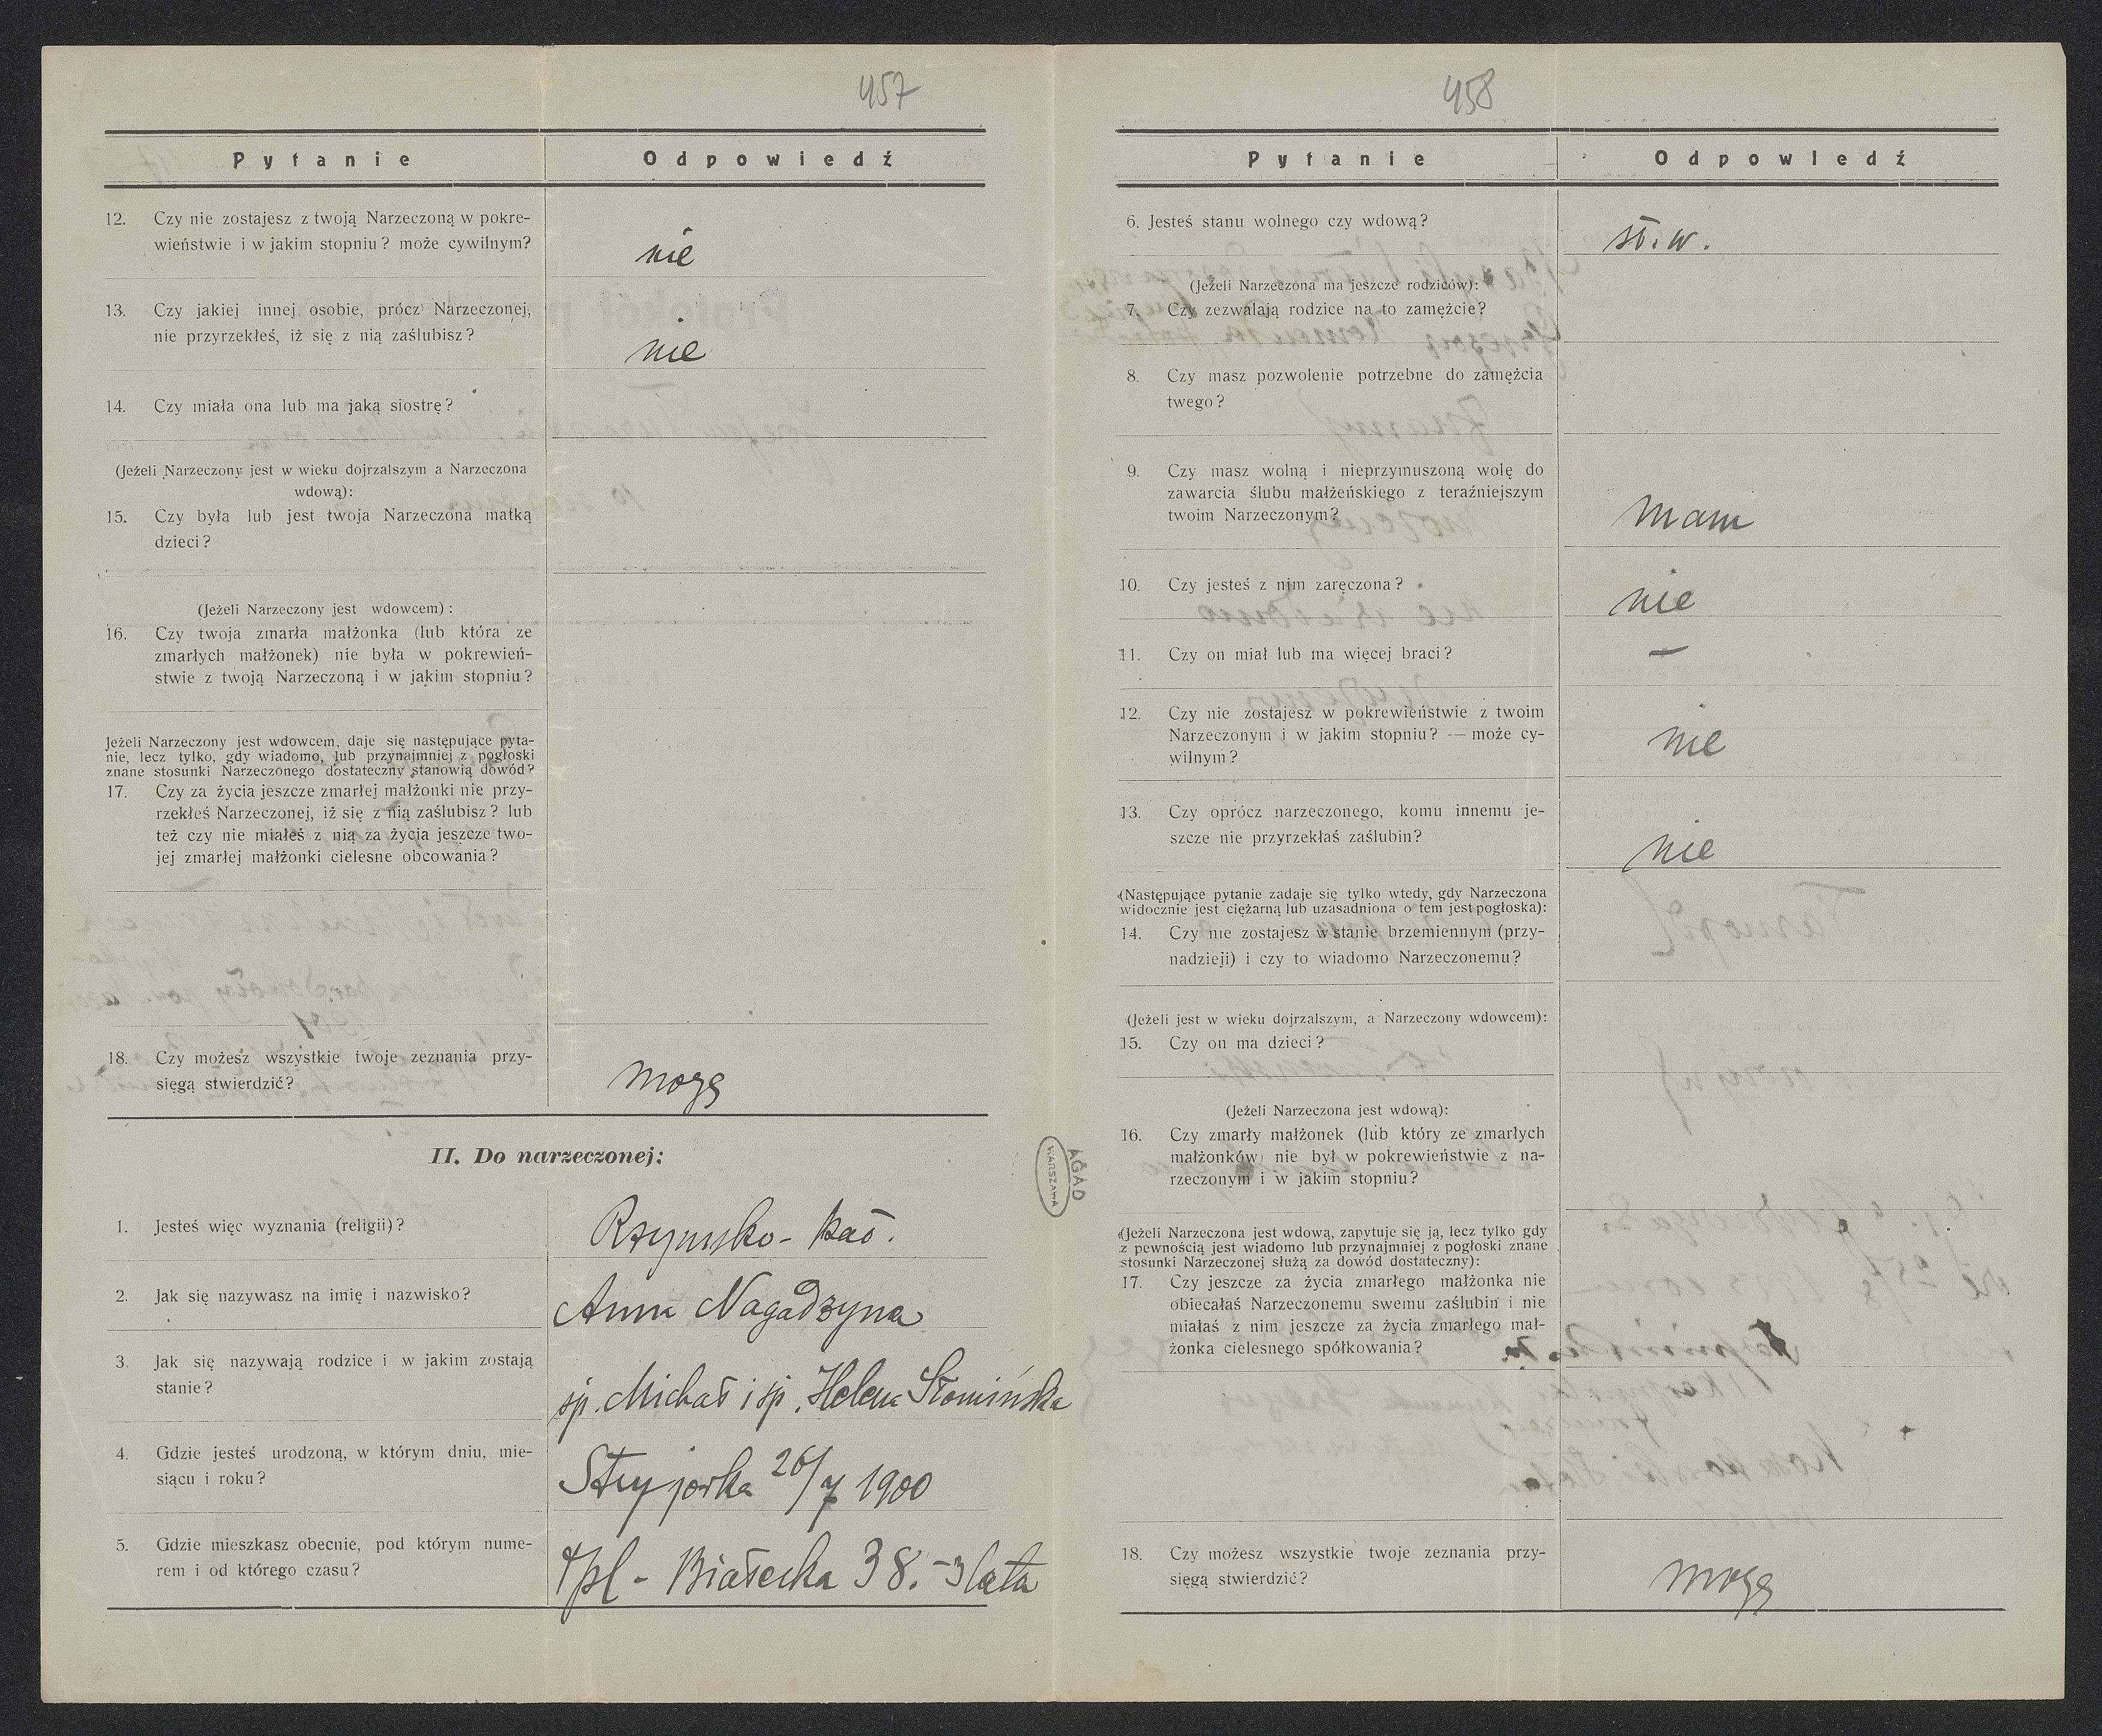 457
Pytanie Odpowiedź
12. Czy nie zostajesz z twoją Narzeczoną w pokre-
wieństwie i w jakim stopniu? może cywilnym?
nie
13. Czy jakiej innej osobie, prócz Narzeczonej,
nie przyrzekłeś, iż się z nią zaślubisz?
nie
14. Czy miała ona lub ma jaką siostrę?
(Jeżeli Narzeczony jest w wieku dojrzalszym a Narzeczona
wdową):
15. Czy była lub jest twoja Narzeczona matką
dzieci?
(Jeżeli Narzeczony jest wdowcem):
16. Czy twoja zmarła małżonka (lub która ze
zmarłych małżonek) nie była w pokrewień-
stwie z twoją Narzeczoną i w jakim stopniu?
Jeżeli Narzeczony jest wdowcem, daje się następujące pyta-
nie, lecz tylko, gdy wiadomo, lub przynajmniej z pogłoski
znane stosunki Narzeczonego dostateczny stanowią dowód?
17. Czy za życia jeszcze zmarłej małżonki nie przy-
rzekłeś Narzeczonej, iż się z nią zaślubisz? lub
też czy nie miałeś z nią za życia jeszcze two-
jej zmarłej małżonki cielesne obcowania?
18. Czy możesz wszystkie twoje zeznania przy-
sięgą stwierdzić?
mogę
II. Do narzeczonej:
1. Jesteś więc wyznania (religii)?
Rzymsko-kat.
2. Jak się nazywasz na imię i nazwisko?
Anna Nagadzyna
3. Jak się nazywają rodzice i w jakim zostają
stanie?
śp. Michał i śp. Helena Słomińska
4. Gdzie jesteś urodzoną, w którym dniu, mie-
siącu i roku?
Stryjorka 26/7 1900
5. Gdzie mieszkasz obecnie, pod którym nume-
rem i od którego czasu?
Tpl - Białecka 38. - 3 lata
458
Pytanie Odpowiedź
6. Jesteś stanu wolnego czy wdową?
st. w.
(Jeżeli Narzeczona ma jeszcze rodziców):
7. Czy zezwalają rodzice na to zamężcie?
8. Czy masz pozwolenie potrzebne do zamężcia
twego?
9. Czy masz wolną i nieprzymuszoną wolę do
zawarcia ślubu małżeńskiego z teraźniejszym
twoim Narzeczonym?
mam
10. Czy jesteś z nim zaręczona?
nie
11. Czy on miał lub ma więcej braci?
—
12. Czy nie zostajesz w pokrewieństwie z twoim
Narzeczonym i w jakim stopniu? — może cy-
wilnym?
nie
13. Czy oprócz narzeczonego, komu innemu je-
szcze nie przyrzekłaś zaślubin?
nie
(Następujące pytanie zadaje się tylko wtedy, gdy Narzeczona
widocznie jest ciężarną lub uzasadniona o tem jest pogłoska):
14. Czy nie zostajesz w stanie brzemiennym (przy-
nadzieji) i czy to wiadomo Narzeczonemu?
(Jeżeli jest w wieku dojrzalszym, a Narzeczony wdowcem):
15. Czy on ma dzieci?
(Jeżeli Narzeczona jest wdową):
16. Czy zmarły małżonek (lub który ze zmarłych
małżonków) nie był w pokrewieństwie z na-
rzeczonym i w jakim stopniu?
(Jeżeli Narzeczona jest wdową, zapytuje się ją, lecz tylko gdy
z pewnością jest wiadomo lub przynajmniej z pogłoski znane
stosunki Narzeczonej służą za dowód dostateczny):
17. Czy jeszcze za życia zmarłego małżonka nie
obiecałaś Narzeczonemu swemu zaślubin i nie
miałaś z nim jeszcze za życia zmarłego mał-
żonka cielesnego spółkowania?
18. Czy możesz wszystkie twoje zeznania przy-
sięgą stwierdzić?
mogę
AGAD
WARSZAWA